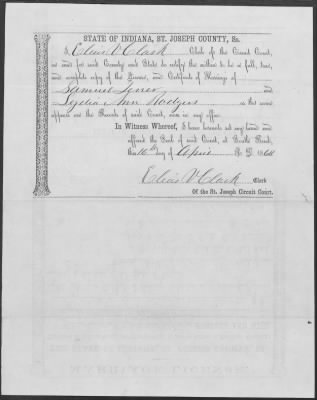 STATE OF INDIANA, ST. JOSEPH COUNTY, Ss.
I, Elias V Clark Clerk of the Circuit Court,
in and for said County and State do certify the within to be a full, true,
and complete copy of the License, and Certificate of Marriage of
Samuel and
Lydia Ann Rodgers as the same
appears on the Records of said Court, now in my office.
In Witness Whereof, I have hereunto set my hand and
affixed the Seal of said Court, at South Bend,
this 16th day of April A. D. 186
Elias V Clark Clerk
Of the St. Joseph Circuit Court.